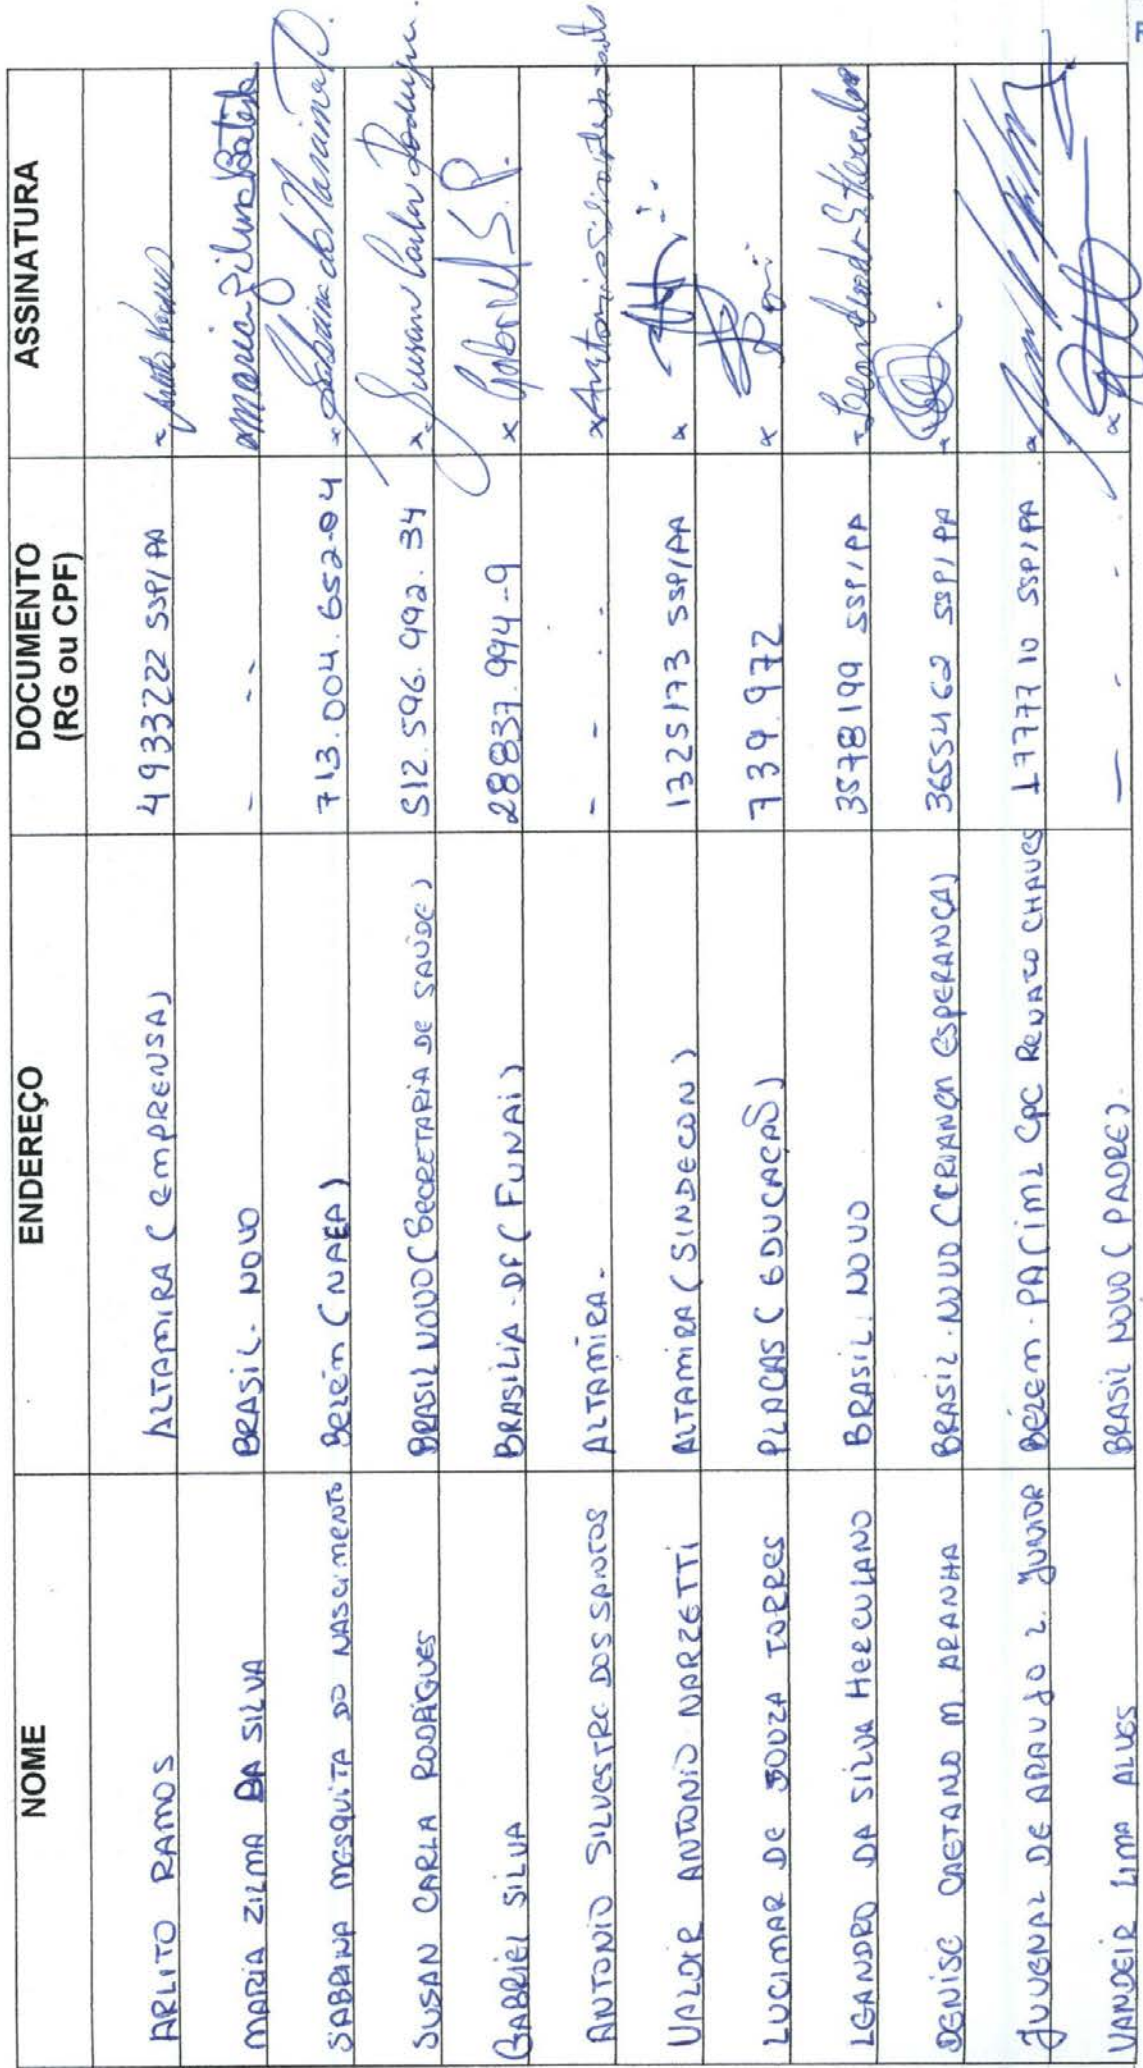 NOME ENDEREÇO DOCUMENTO (RG ou CPF) ASSINATURA
ARLITO RAMOS ALTAMIRA (EMPRENSA) 4933222 SSP/PA
MARIA ZILMA DA SILVA BRASIL NOVO - - - Maria Zilma Batista
SABRINA MESQUITA DO NASCIMENTO BELÉM (NAEA) 713.004.652-04 x Sabrina do Nascimento
SUSAN CARLA RODRIGUES BRASIL NOVO (SECRETARIA DE SAÚDE) 512.596.992.34 x Susan Carla Rodrigues
GABRIEL SILVA BRASILIA-DF (FUNAI) 28837.994-9 x Gabriel S.P.
ANTONIO SILVESTRE DOS SANTOS ALTAMIRA. - - - x Antonio Silvestre dos Santos
VALDIR ANTONIO NARZETTI ALTAMIRA (SINDECON) 1325173 SSP/PA x
LUCIMAR DE SOUZA TORRES PLACAS (EDUCAÇÃO) 739.972 x
LEANDRO DA SILVA HERCULANO BRASIL NOVO 3578199 SSP/PA x Leandro da S. Herculano
DENISE CAETANO M. ARANHA BRASIL NOVO (CRIANÇA ESPERANÇA) 3655462 SSP/PA x
JUVENAL DE ARAUJO L. JUNIOR BELÉM-PA (IML CPC RENATO CHAVES 1777710 SSP/PA x
VANDEIR LIMA ALVES BRASIL NOVO (PADRE). - - - x